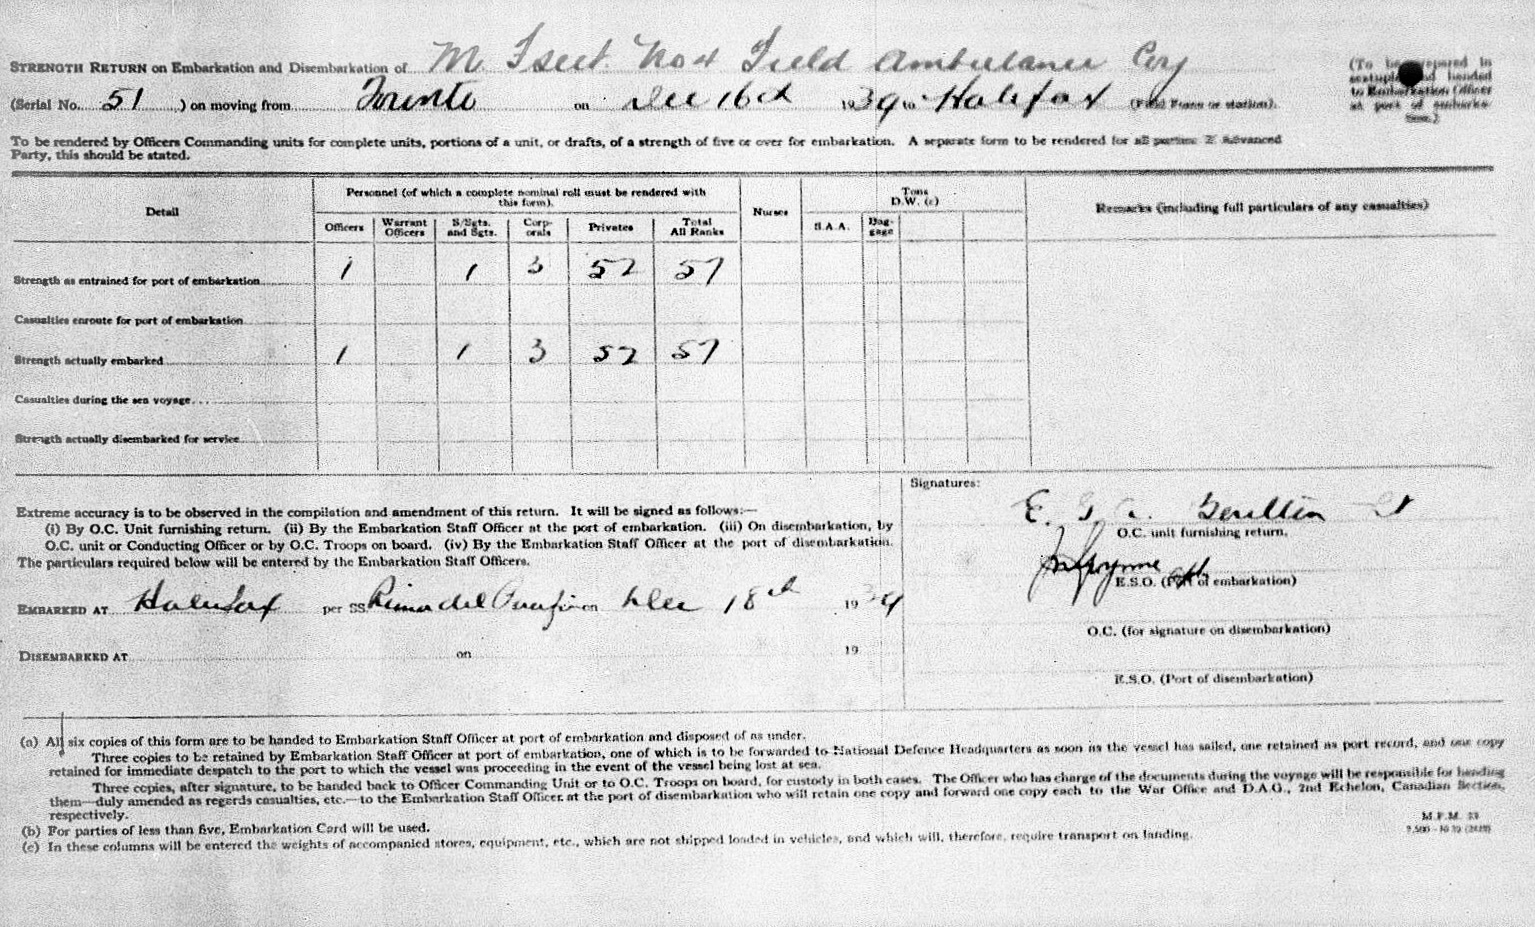 STRENGTH RETURN on Embarkation and Disembarkation of M. T sect. No 4 Field Ambulance Coy
(Serial No. 51 ) on moving from Toronto on Dec 16th 1939 to Halifax (Field Force or station).
(To be prepared in
sextuplicate and handed
to Embarkation Officer
at port of embarka-
tion.)
To be rendered by Officers Commanding units for complete units, portions of a unit, or drafts, of a strength of five or over for embarkation. A separate form to be rendered for all parties. If Advanced
Party, this should be stated.
Detail
Personnel (of which a complete nominal roll must be rendered with
this form).
Nurses
Tons
D.W. (c)
Remarks (including full particulars of any casualties)
Officers Warrant Officers S/Sgts. and Sgts. Corporals Privates Total All Ranks S.A.A. Baggage
Strength as entrained for port of embarkation 1 1 3 52 57
Casualties enroute for port of embarkation
Strength actually embarked 1 1 3 52 57
Casualties during the sea voyage...
Strength actually disembarked for service
Extreme accuracy is to be observed in the compilation and amendment of this return. It will be signed as follows:—
(i) By O.C. Unit furnishing return. (ii) By the Embarkation Staff Officer at the port of embarkation. (iii) On disembarkation, by
O.C. unit or Conducting Officer or by O.C. Troops on board. (iv) By the Embarkation Staff Officer at the port of disembarkation.
The particulars required below will be entered by the Embarkation Staff Officers.
EMBARKED AT Halifax per SS on Dec 18th 1939
DISEMBARKED AT on 19
Signatures:
E. G.
O.C. unit furnishing return.
E.S.O. (Port of embarkation)
O.C. (for signature on disembarkation)
E.S.O. (Port of disembarkation)
(a) All six copies of this form are to be handed to Embarkation Staff Officer at port of embarkation and disposed of as under.
Three copies to be retained by Embarkation Staff Officer at port of embarkation, one of which is to be forwarded to National Defence Headquarters as soon as the vessel has sailed, one retained as port record, and one copy
retained for immediate despatch to the port to which the vessel was proceeding in the event of the vessel being lost at sea.
Three copies, after signature, to be handed back to Officer Commanding Unit or to O.C. Troops on board, for custody in both cases. The Officer who has charge of the documents during the voyage will be responsible for handing
them—duly amended as regards casualties, etc.—to the Embarkation Staff Officer at the port of disembarkation who will retain one copy and forward one copy each to the War Office and D.A.G., 2nd Echelon, Canadian Section,
respectively.
(b) For parties of less than five, Embarkation Card will be used.
(c) In these columns will be entered the weights of accompanied stores, equipment, etc., which are not shipped loaded in vehicles, and which will, therefore, require transport on landing.
M.F.M. 23